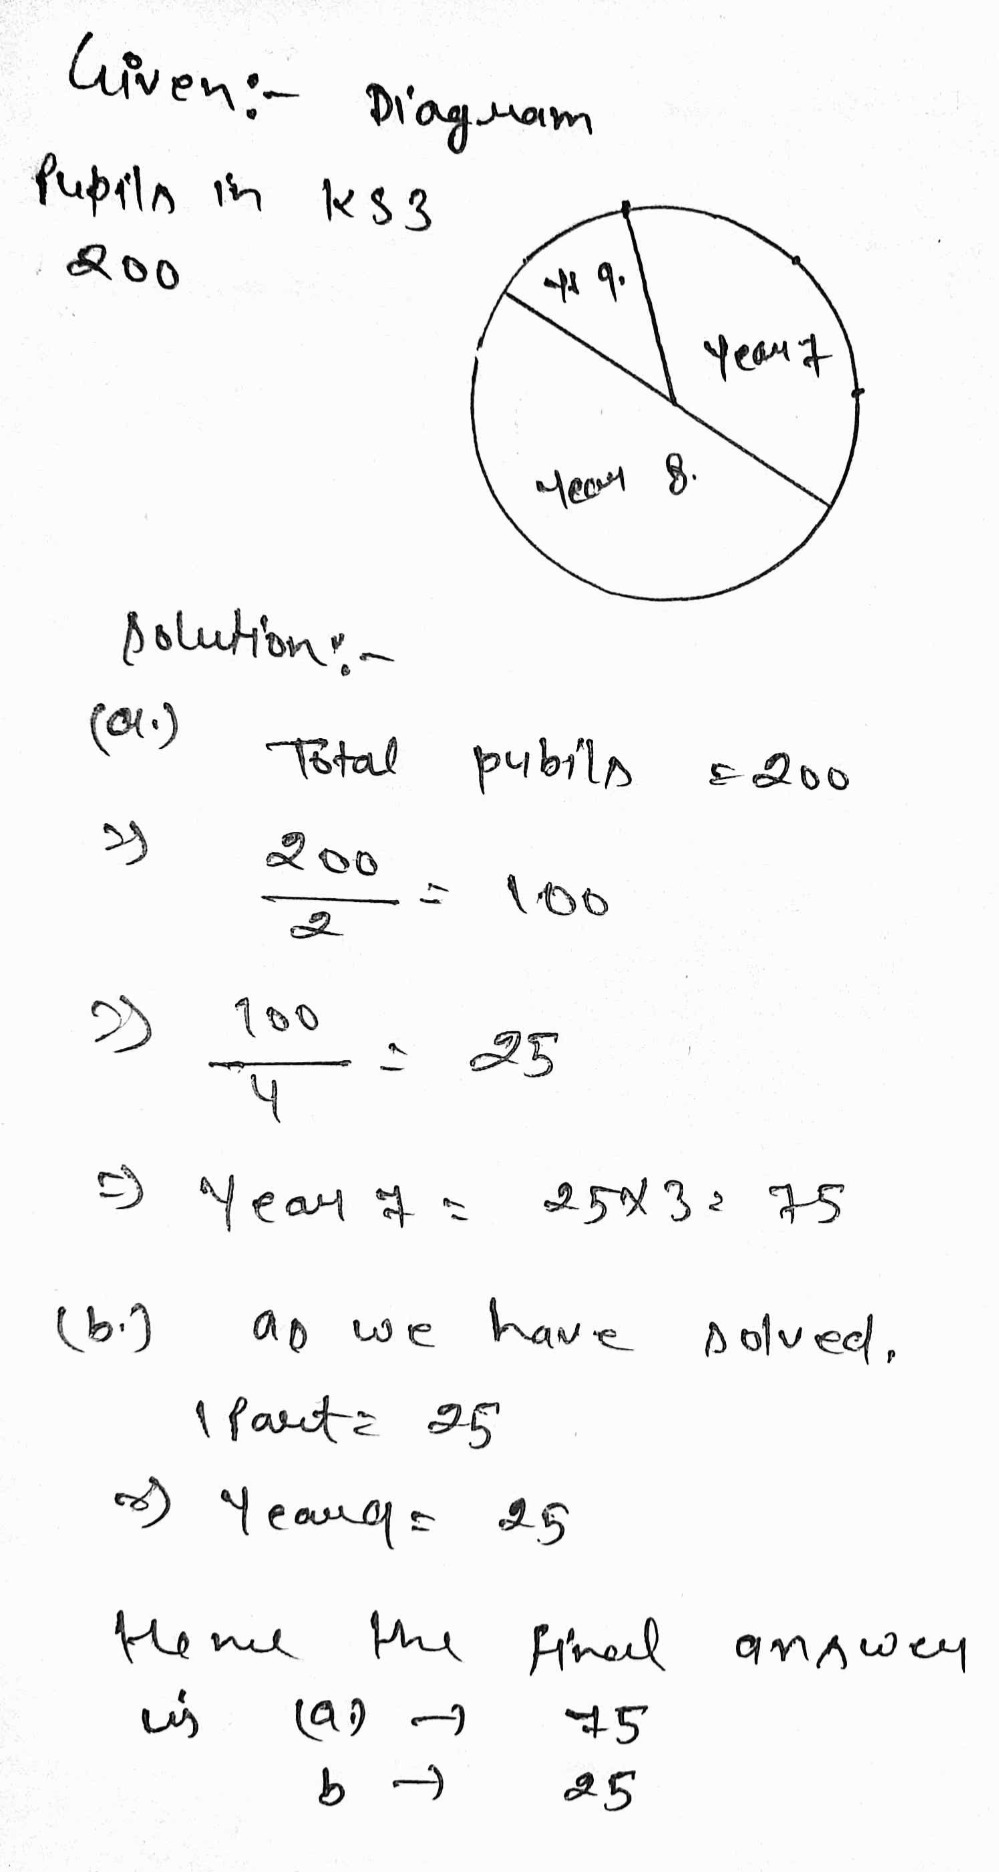 Given:- Diagram
Pupils in KS3
200
Yr 9.
Year 7
Year 8.
Solution:-
(a.)
Total pubils = 200
⇒ 200/2 = 100
⇒ 100/4 = 25
⇒ Year 7 = 25×3 = 75
(b.) as we have solved,
1 Part = 25
⇒ Year 9 = 25
Hence the final answer
is (a) → 75
b → 25